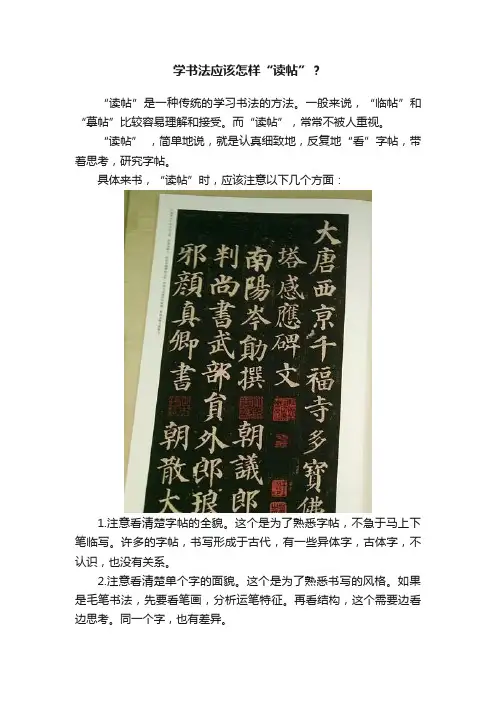 学书法应该怎样“读帖”？
“读帖”是一种传统的学习书法的方法。一般来说，“临帖”和
“摹帖”比较容易理解和接受。而“读帖”，常常不被人重视。
“读帖”，简单地说，就是认真细致地，反复地“看”字帖，带
着思考，研究字帖。
具体来书，“读帖”时，应该注意以下几个方面：
大唐西京千福寺多寶佛
塔感應碑文
南陽岑勛撰 朝議郎
判尚書武部員外郎琅
邪顏真卿書 朝散大
1.注意看清楚字帖的全貌。这个是为了熟悉字帖，不急于马上下
笔临写。许多的字帖，书写形成于古代，有一些异体字，古体字，不
认识，也没有关系。
2.注意看清楚单个字的面貌。这个是为了熟悉书写的风格。如果
是毛笔书法，先要看笔画，分析运笔特征。再看结构，这个需要边看
边思考。同一个字，也有差异。